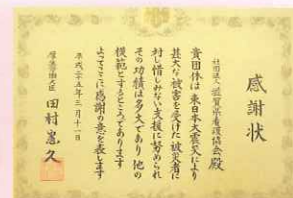 感謝状
社団法人 滋賀県看護協会殿
貴団体は東日本大震災により
甚大な被害を受けた被災者に
対し惜しみない支援に努められ
その功績は多大であり他の
模範とするところであります
よってここに感謝の意を表します
平成二十五年三月十一日
厚生労働大臣 田村憲久